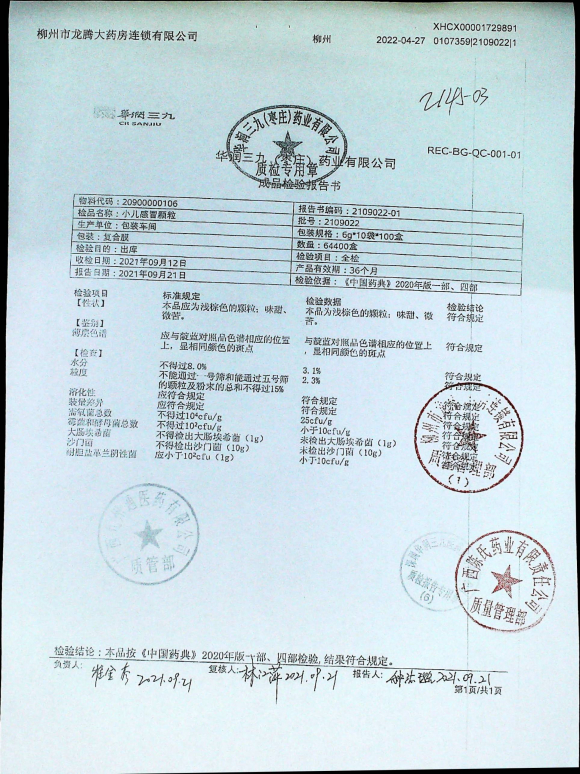 XHCX00001729891
柳州市龙腾大药房连锁有限公司 柳州 2022-04-27 0107359|2109022|1
2145-03
华润三九
CR SANJIU
华润三九(枣庄)药业有限公司
质检专用章
REC-BG-QC-001-01
华润三九(枣庄)药业有限公司
成品检验报告书
物料代码：20900000106 报告书编码：2109022-01
检品名称：小儿感冒颗粒 批号：2109022
生产单位：包装车间 包装规格：6g*10袋*100盒
包装：复合膜 数量：64400盒
检验目的：出库 检验项目：全检
收检日期：2021年09月12日 产品有效期：36个月
报告日期：2021年09月21日 检验依据：《中国药典》2020年版一部、四部
检验项目 标准规定 检验数据 检验结论
【性状】 本品应为浅棕色的颗粒；味甜、 本品为浅棕色的颗粒；味甜、微 符合规定
微苦。 苦。
【鉴别】
薄层色谱 应与靛蓝对照品色谱相应的位置 与靛蓝对照品色谱相应的位置上 符合规定
上，显相同颜色的斑点 ，显相同颜色的斑点
【检查】
水分 不得过8.0% 3.1% 符合规定
粒度 不能通过一号筛和能通过五号筛 2.3% 符合规定
的颗粒及粉末的总和不得过15%
溶化性 应符合规定 符合规定 符合规定
装量差异 应符合规定 符合规定 符合规定
需氧菌总数 不得过10³cfu/g 25cfu/g 符合规定
霉菌和酵母菌总数 不得过10²cfu/g 小于10cfu/g 符合规定
大肠埃希菌 不得检出大肠埃希菌（1g） 未检出大肠埃希菌（1g） 符合规定
沙门菌 不得检出沙门菌（10g） 未检出沙门菌（10g） 符合规定
耐胆盐革兰阴性菌 应小于10²cfu（1g） 小于10cfu/g 符合规定
质量管理部
(1)
质管部
(6)
广西陈氏药业有限责任公司
质量管理部
检验结论：本品按《中国药典》2020年版一部、四部检验,结果符合规定。
负责人： 2021.09.21 复核人： 2021.09.21 报告人： 2021.09.21
第1页/共1页